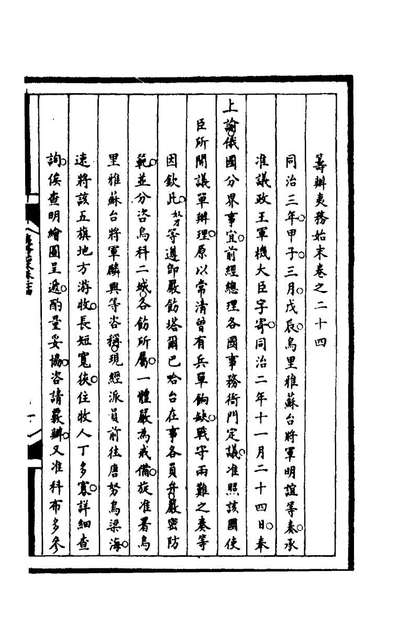 籌辦夷務始末卷之二十四
同治三年。甲子。三月。戊辰。烏里雅蘇台將軍明誼等奏。承
准議政王軍機大臣字寄。同治二年十一月二十四日。奉
上諭。俄國分界事宜。前經總理各國事務衙門定議。准照該國使
臣所開議單辦理。原以常清曾有兵單餉缺。戰守兩難之奏等
因。欽此。奴才等遵即嚴飭塔爾巴哈台在事各員弁。嚴密防
範。並分咨烏科二城。各飭所屬。一體嚴為戒備。旋准署烏
里雅蘇台將軍麟興等咨稱。現經派員前往唐努烏梁海。
速將該五旗地方游牧。長短寬狹。住牧人丁多寡。詳細查
詢。俟查明繪圖呈遞。酌量妥協。咨請覈辦。又准科布多參